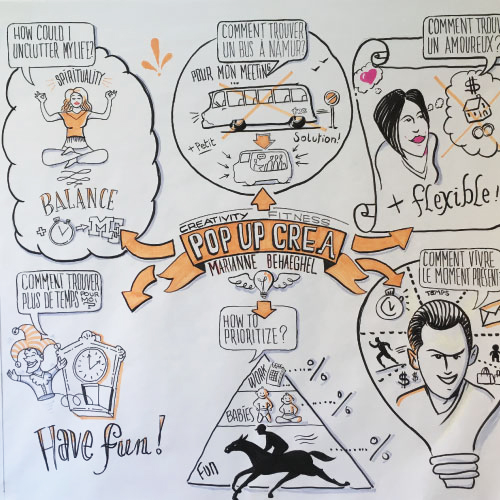 HOW COULD I
UNCLUTTER MY LIFE?
SPIRITUALITY
BALANCE
+
ME
COMMENT TROUVER
UN BUS À NAMUR?
POUR MON MEETING...
+ Petit
Solution!
COMMENT TROUV
UN AMOUREUX?
+ flexible!
CREATIVITY FITNESS
POP UP CREA
MARIANNE BEHAEGHEL
COMMENT TROUVER
PLUS DE TEMPS POUR
MOI?
Have fun!
HOW TO
PRIORITIZE?
WORK
BABIES
FUN
%
%
%
COMMENT VIVRE
LE MOMENT PRESENT
TEMPS
$ $
$